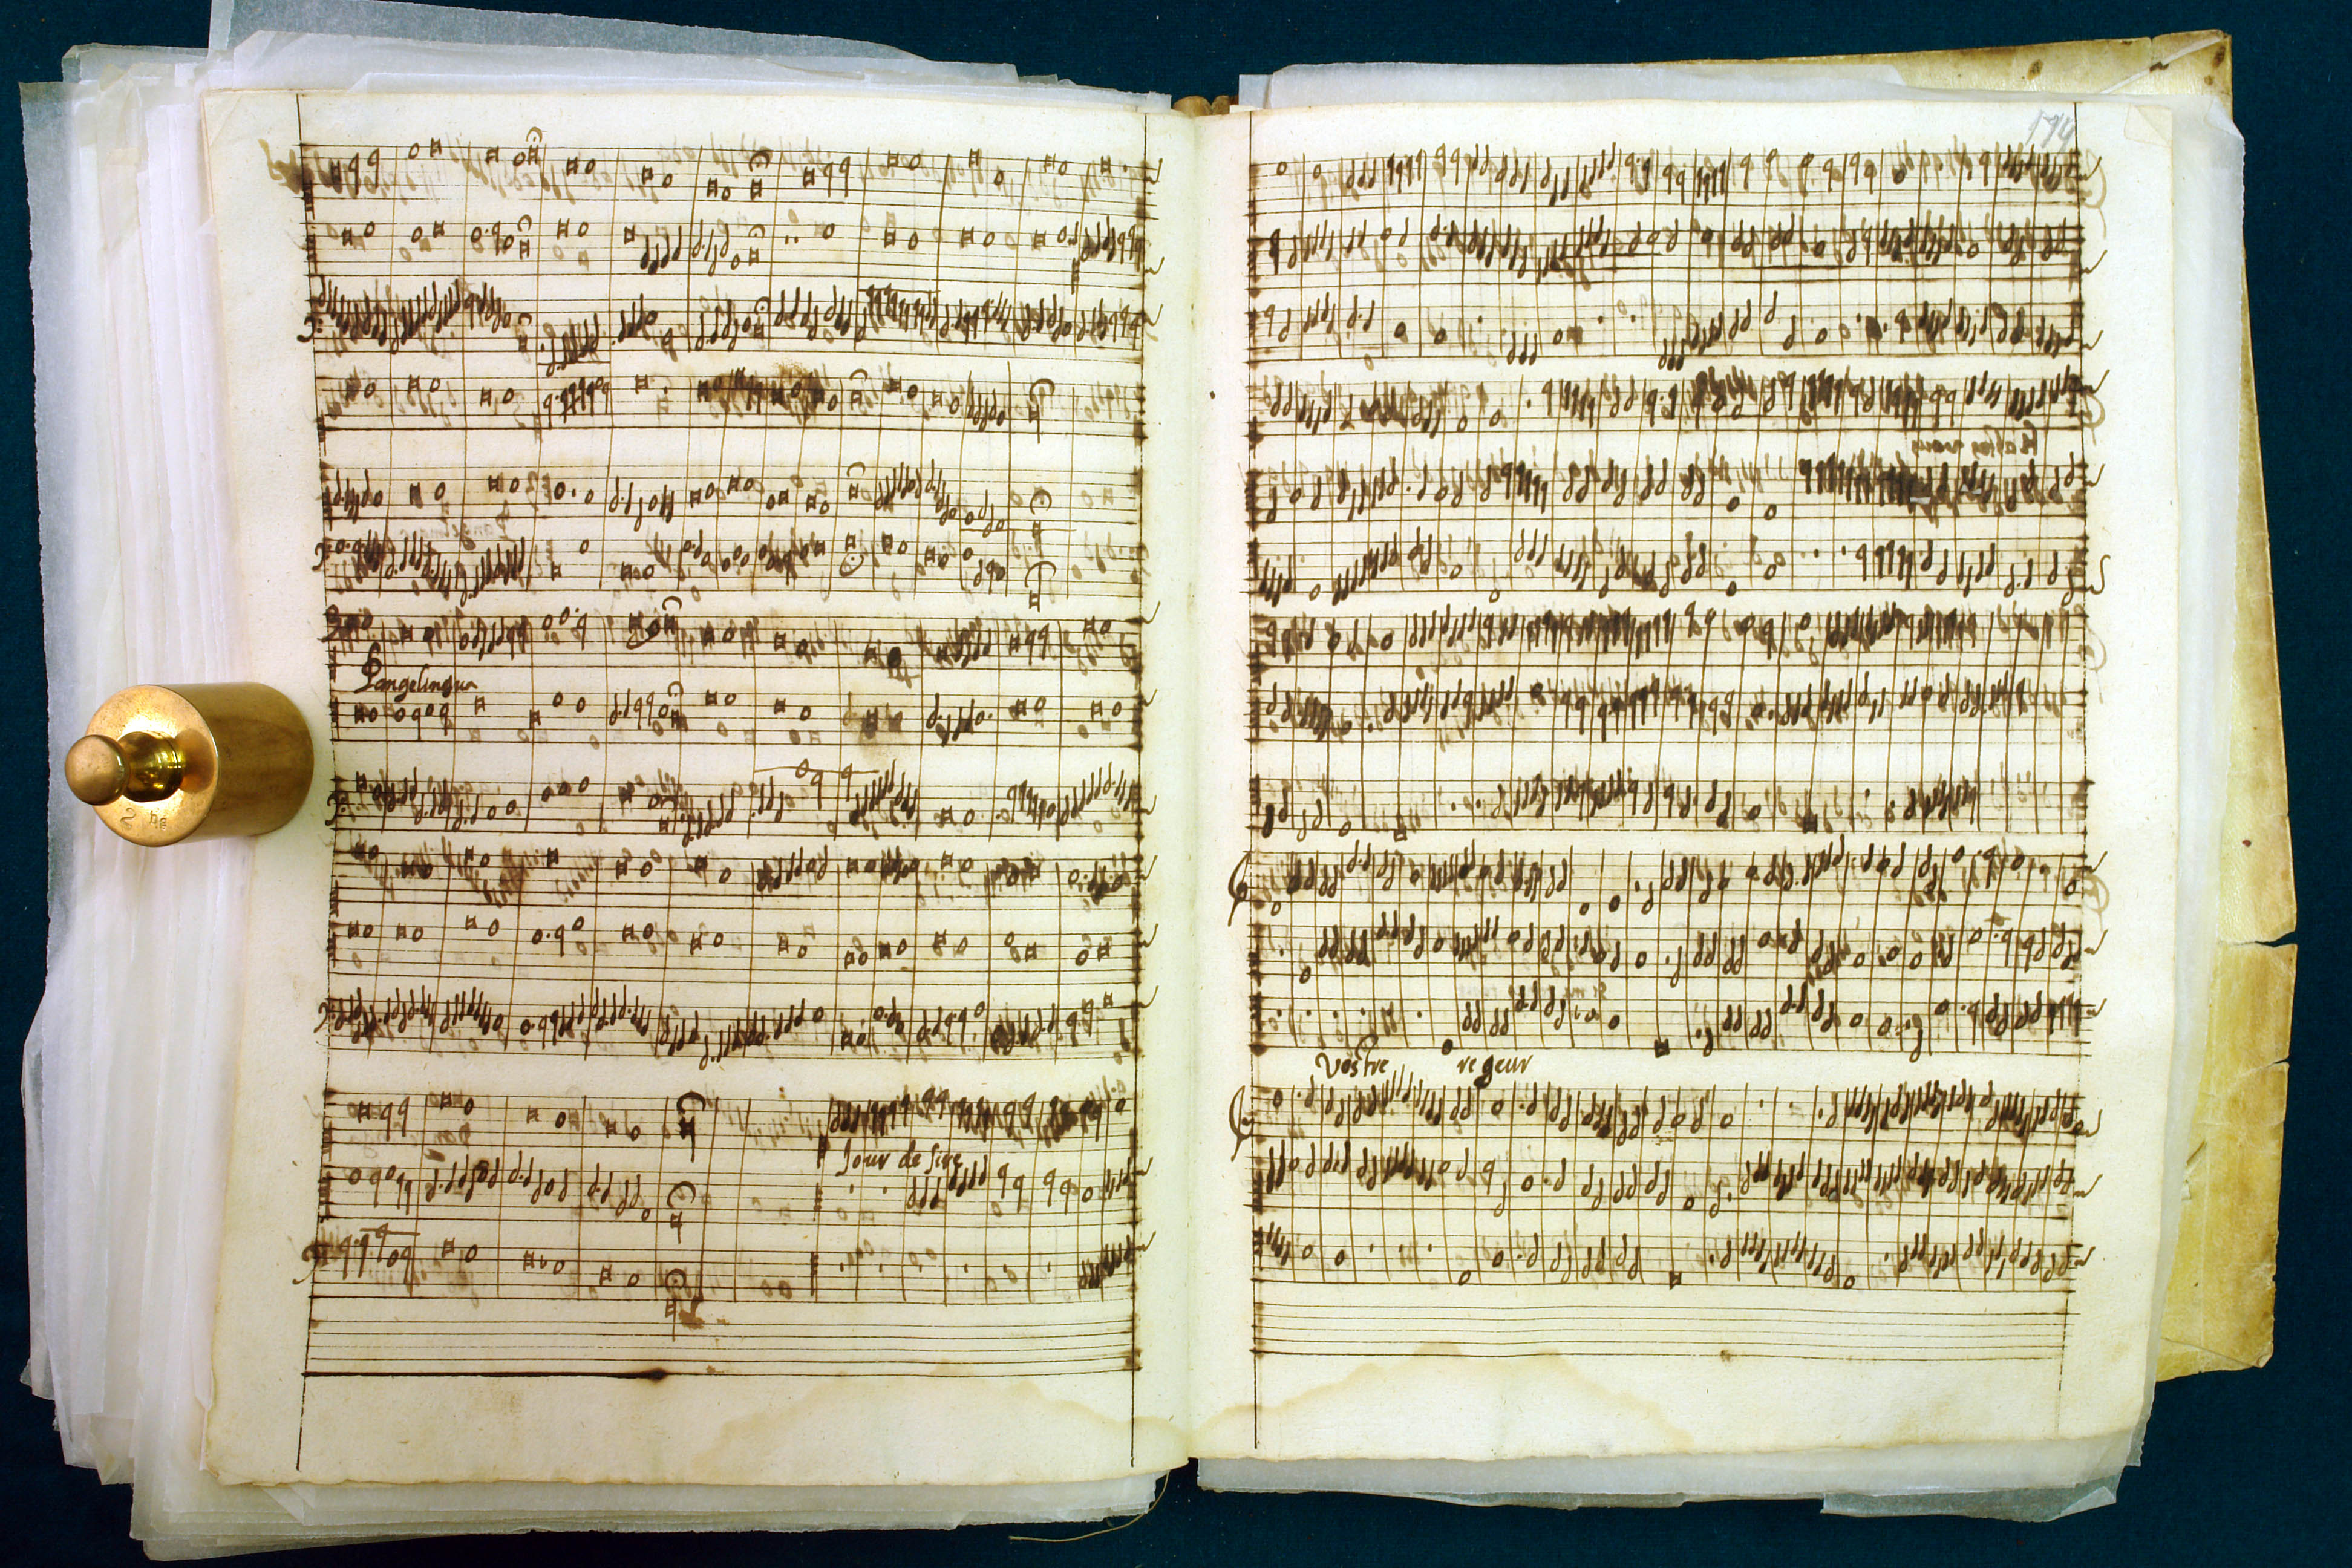 Pangelingua
Jour de sire
174
vostre regeur